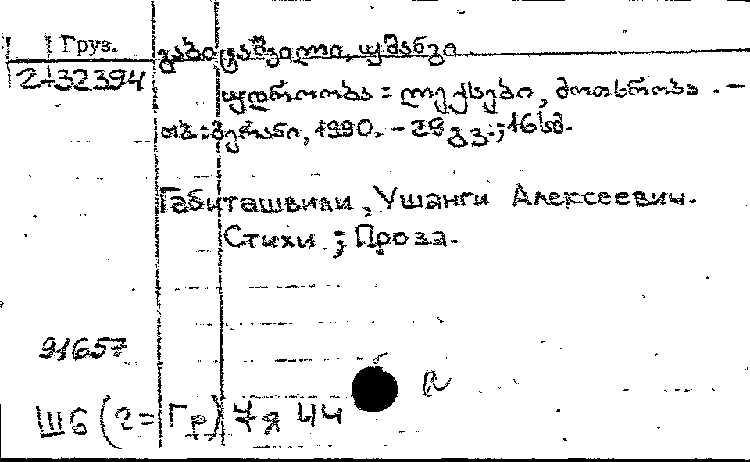 Груз.
გაბიტაშვილი, უშანგი.
2-32394
უდროობა : ლექსები, მოთხრობა. –
თბ. : მერანი, 1990. – 29 გვ. ; 16 სმ.
Габиташвили, Ушанги Алексеевич.
Стихи ; Проза.
91657
Ш6(2=Гр)7я44